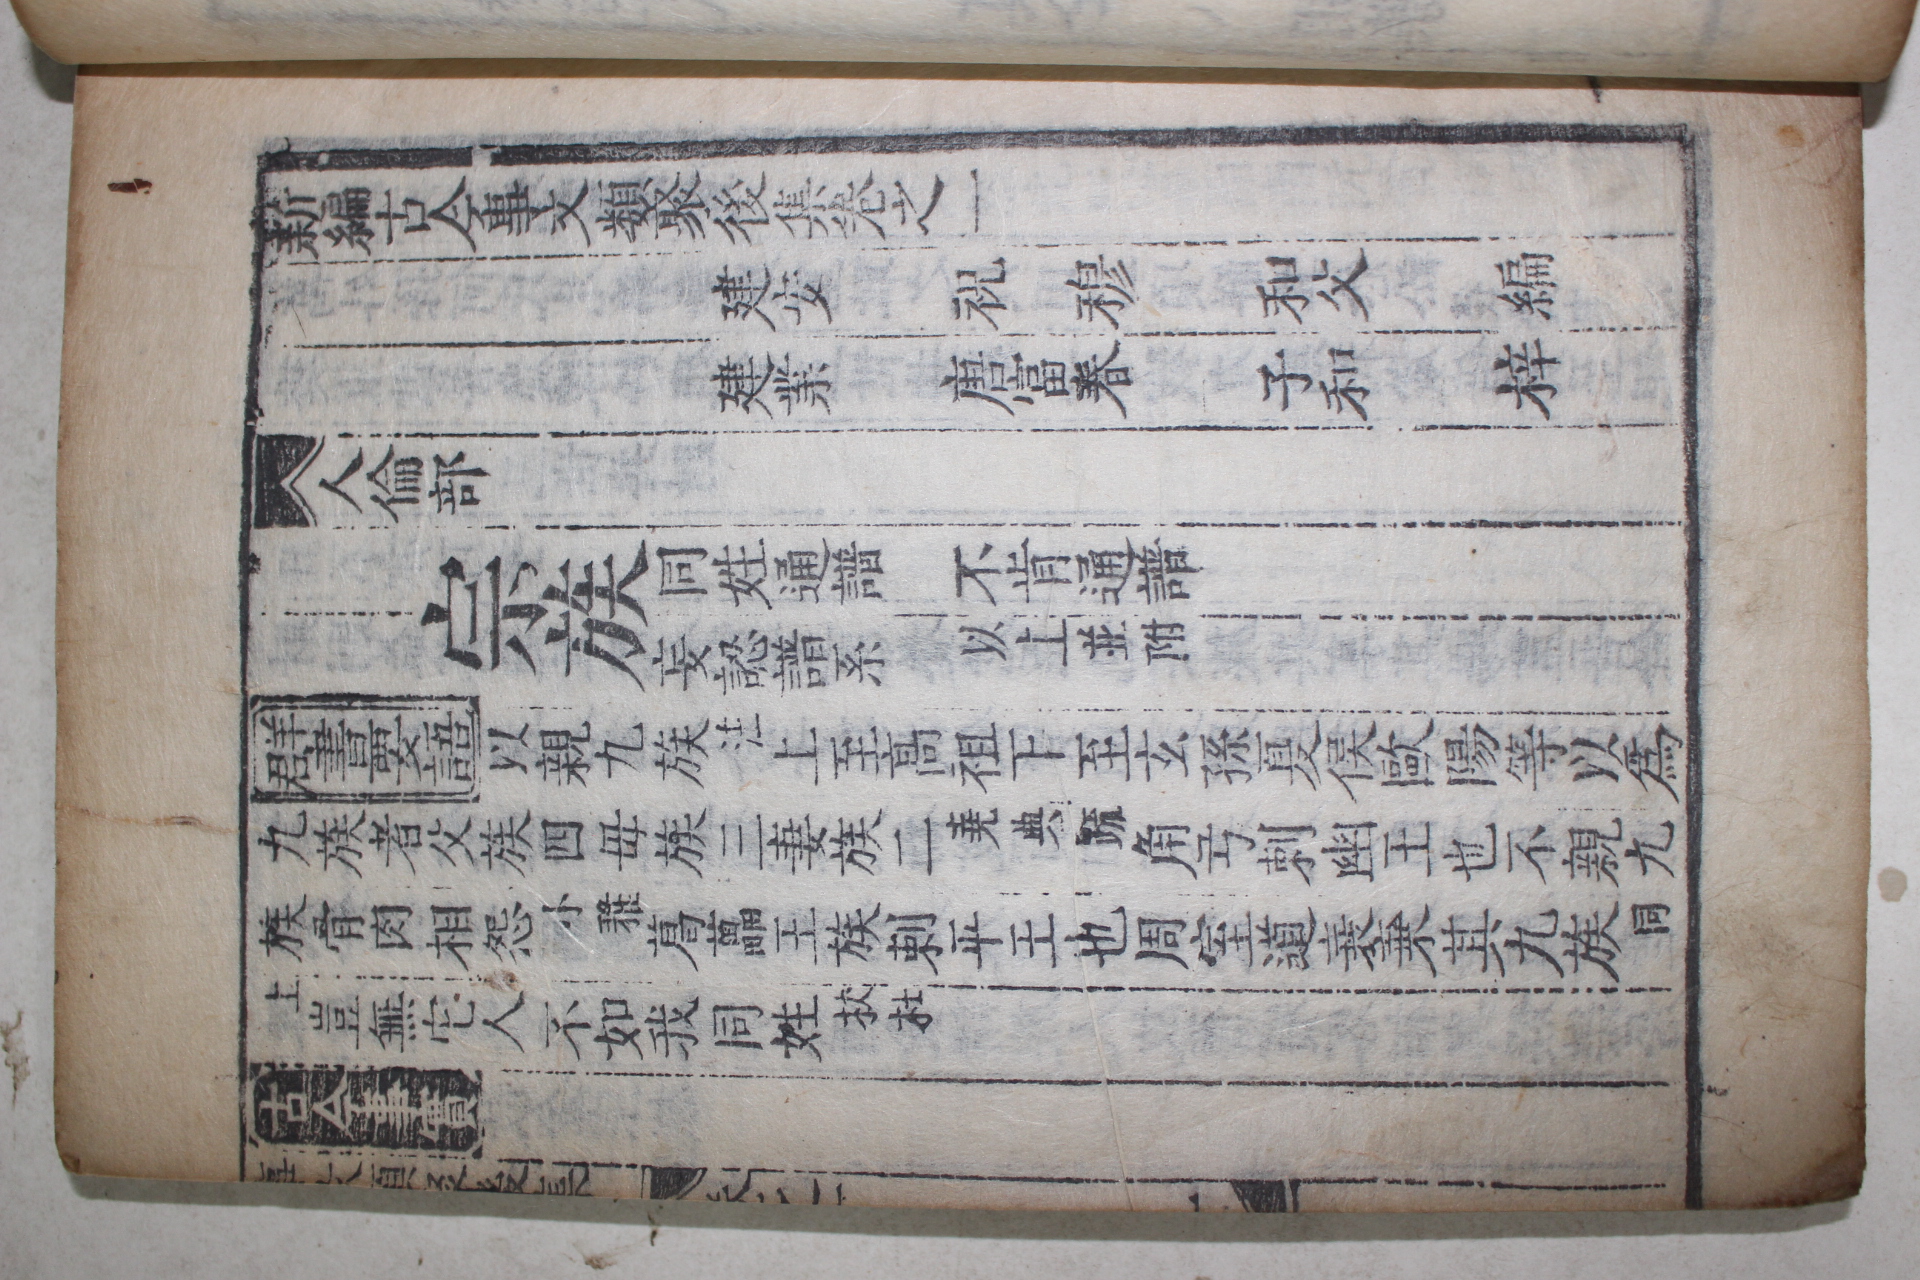 新編古今事文類聚後集卷之一
建安 祝 穆 和父 編
建業 唐富春 子和 梓
人倫部
宗族 同姓通譜 不肯通譜
妄認譜系 以上並附
群書要語 以親九族 注 上至高祖下至玄孫夏侯歐陽等以為
九族者父族四毋族三妻族二 尭典䟽 角弓刺幽王也不親九
族骨肉相怨 小雅 葛藟王族刺平王也周室道衰棄其九族 同
上 豈無它人不如我同姓 杕杜
古今事實
事文類聚後集 卷之一 一